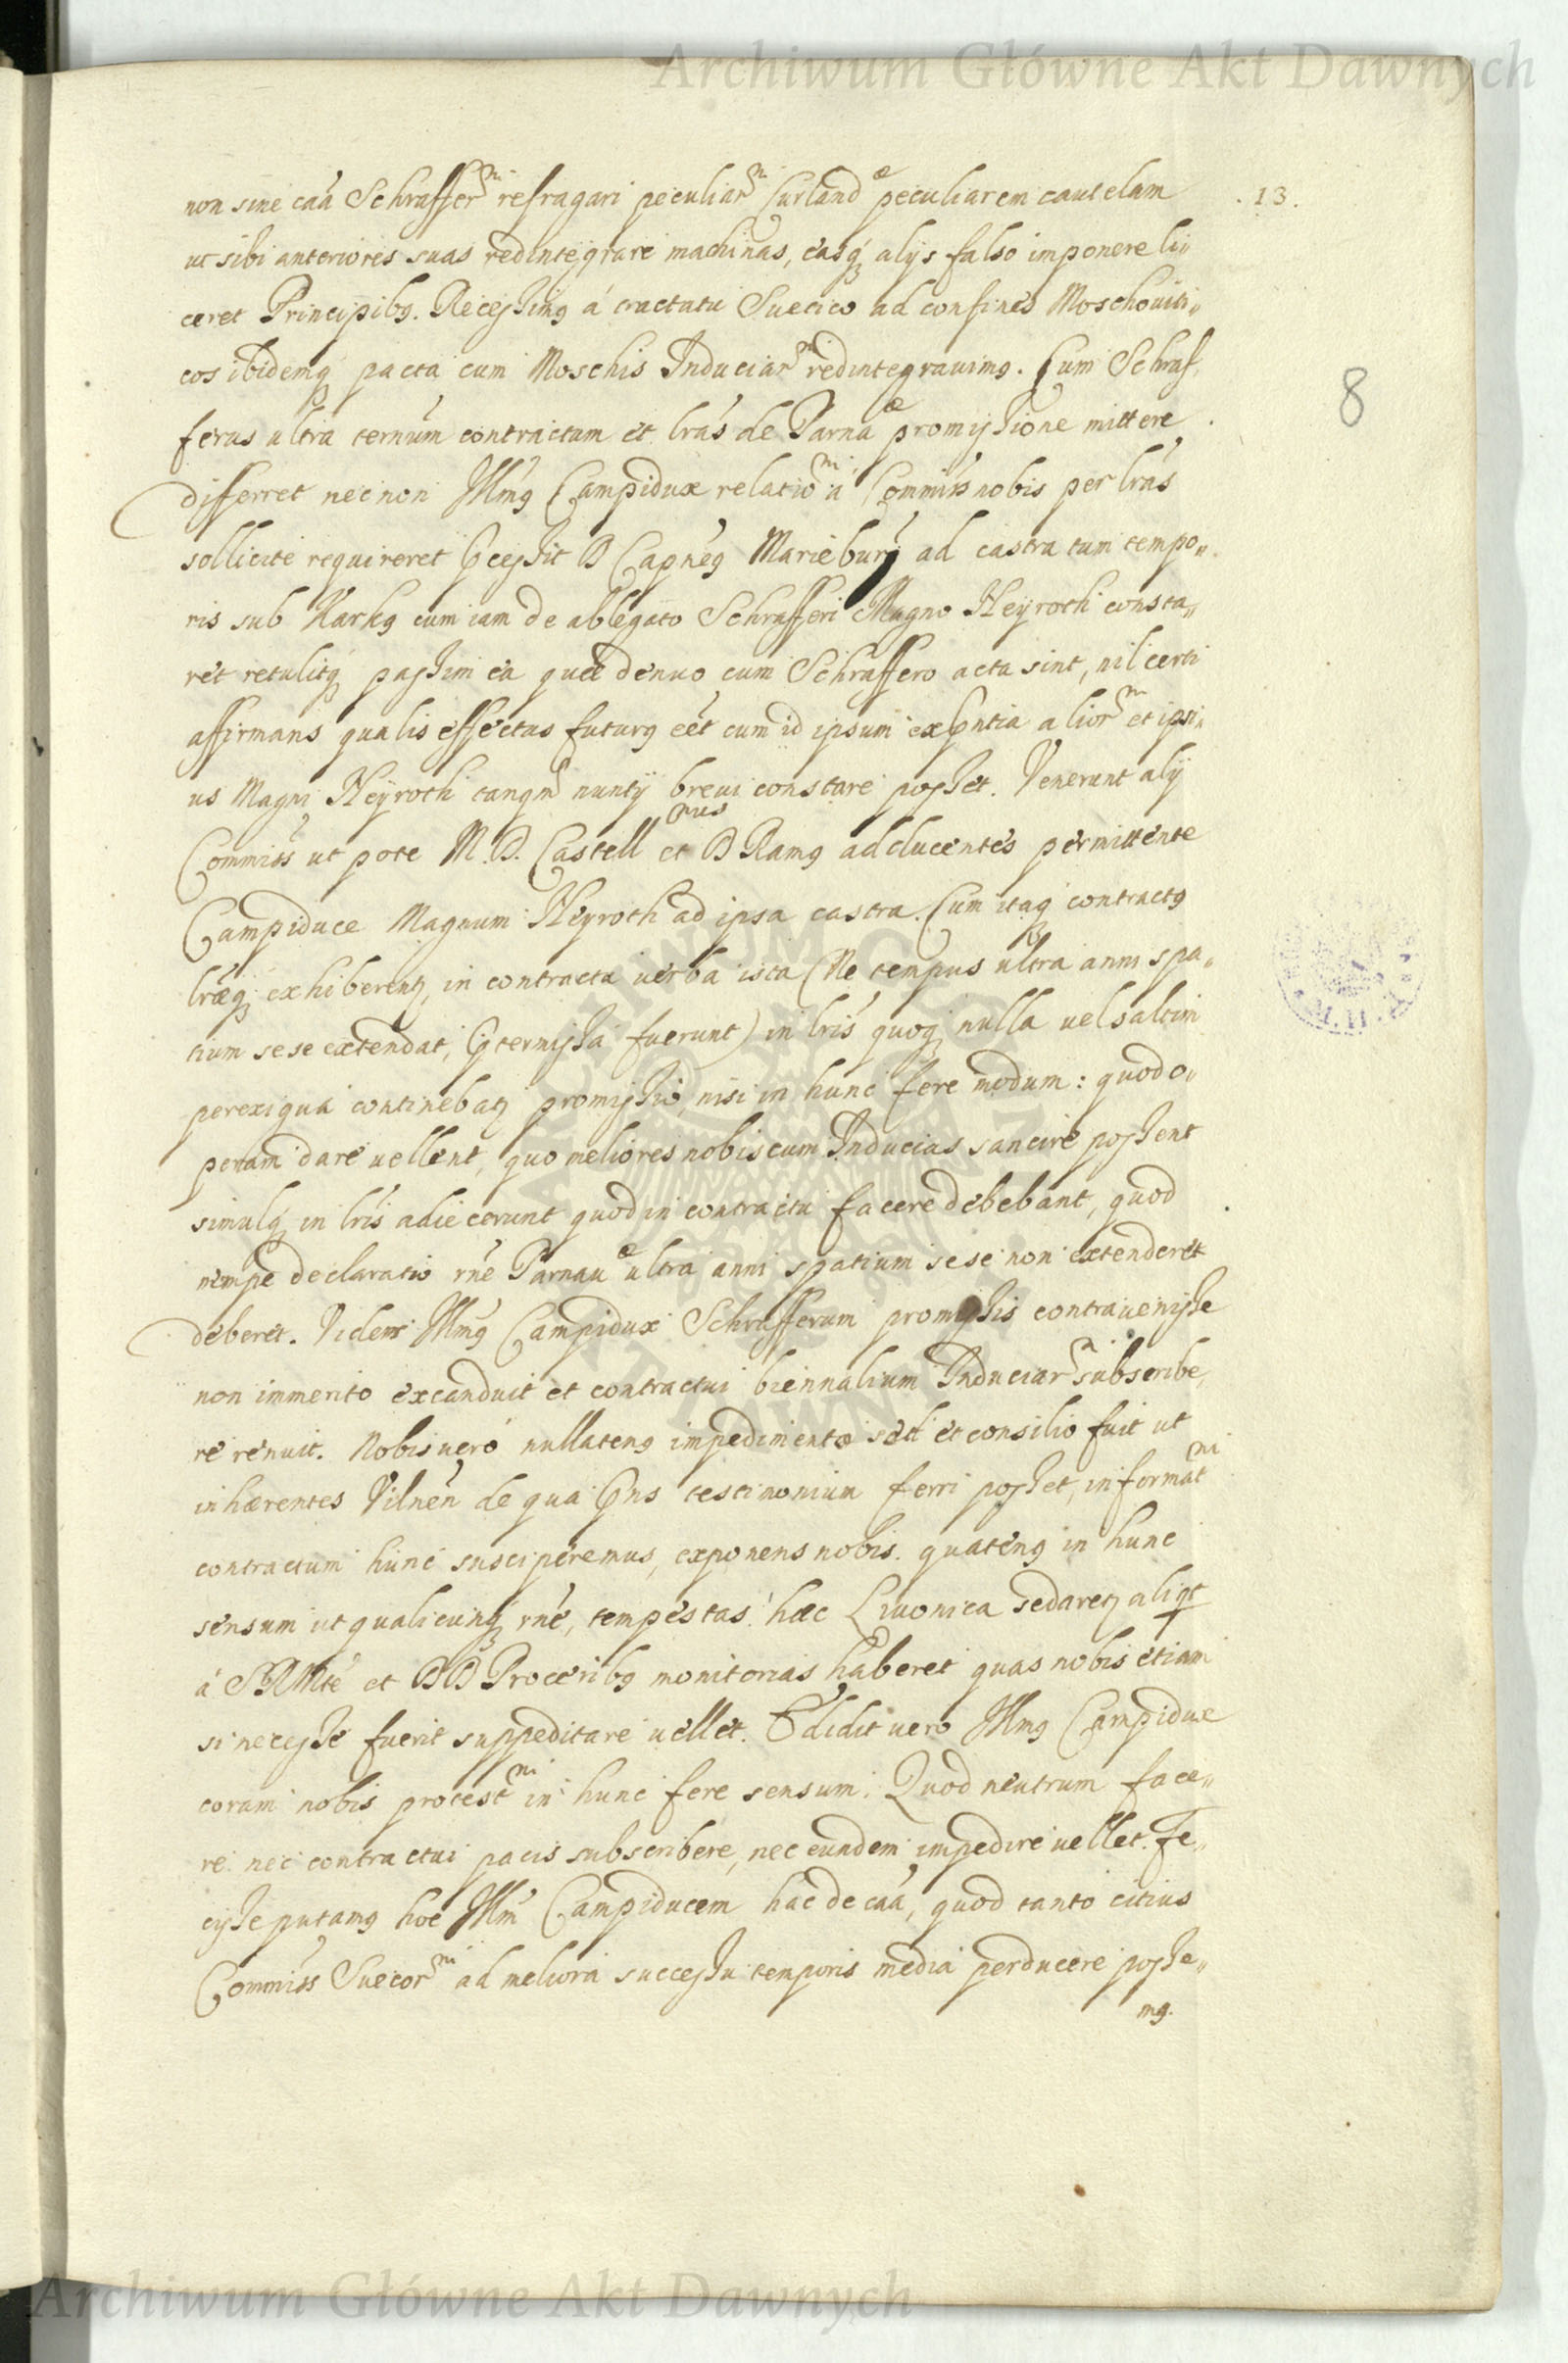 Archiwum Główne Akt Dawnych
non sine caâ Schraffer^m refragari peculiar^m Curland^æ peculiarem cautelam
.13.
ut sibi anteriores suas redintegrare machinas, easq́ alijs falso imponere li„
ceret Principibꝰ. Recessimꝰ á tractatu Suecico ad confines Moschouiti„
cos ibidemq́ pacta cum Moschis Induciar^m redintegrauimꝰ. Cum Schraf„
8
ferus ultra ternûm contractum et lrás de Parna^æ promissione mittere
differret necnon Illmꝰ Campidux relatio^m á Commiss nobis per lrás
sollicite requireret Pcessit D Capneꝰ Marieburg ad castra tum tempo„
ris sub Karkꝰ cum iam de ablegato Schrafferi Magno Heyroth consta„
ret retulitq́ passim ea quæ denuo cum Schraffero acta sint, nil certi
affirmans qualis effectus futurꝰ eêt cum id ipsum ex Pntia alior^m et ipsi„
us Magni Heyroth tanqm̃ nuntij breui constare posset. Venerunt alij
Commiss ut pote M. D. Castell^nus et D Ramꝰ adducentes permittente
Campiduce Magnum Heyroth ad ipsa castra. Cum itaq́ contractꝰ
lræq́ exhiberentꝛ, in contracta uerba ista (Ne tempus ultra anni spa„
tium sese extendat, Ptermissa fuerunt) in lris quoq́ nulla uel saltim
perexigua continebatꝛ promissio, nisi in hunc fere modum: quod o„
peram dare uellent, quo meliores nobiscum Inducias sancire possent
simulq́ in lris adiecerunt quod in contractu facere debebant, quod
nempe declaratio rne Parnau^æ ultra anni spatium sese non extenderet
deberet. Videns Illmꝰ Campidux Schrafferum promissis contrauenisse
non immerito excanduit et contractui biennalium Induciar^m subscribe„
re renuit. Nobis ueró nullatenꝰ impedimento sed et consilio fuit ut
inhærentes Vilneñ de qua Pns testimonium ferri posset, informat^ni
contractum hunc susciperemus, exponens nobis quatenꝰ in hunc
sensum ut qualicunq́ rne, tempestas hæc Liuonica sedaretꝛ aliqt
á SRMte et DD Proceribꝰ monitorias haberet quas nobis etiam
si necesse fuerit suppeditare uellet. Edidit uero Illmꝰ Campidux
coram nobis protest^m in hunc fere sensum. Quod neutrum face„
re nec contractui pacis subscribere, nec eundem impedire uellet. Fe„
cisse putamꝰ hoc Illm̃ Campiducem hac de caâ, quod tanto citius
Commiss Suecor^m ad meliora successu temporis media perducere posse„
mꝰ.
Archiwum Główne Akt Dawnych